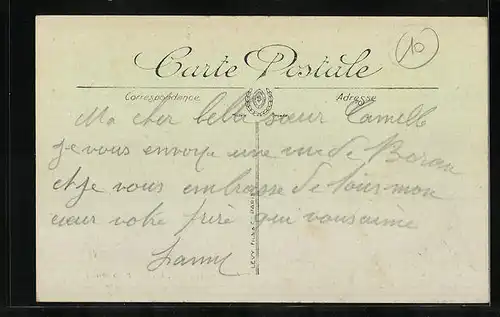 10
Carte Postale
Correspondance
Adresse
Ma cher belle sœur Camelle
je vous envoye une vue de Beran
et je vous embrasse de tous mon
cœur votre frère qui vous aime
LEVY FILS & Cie PARIS